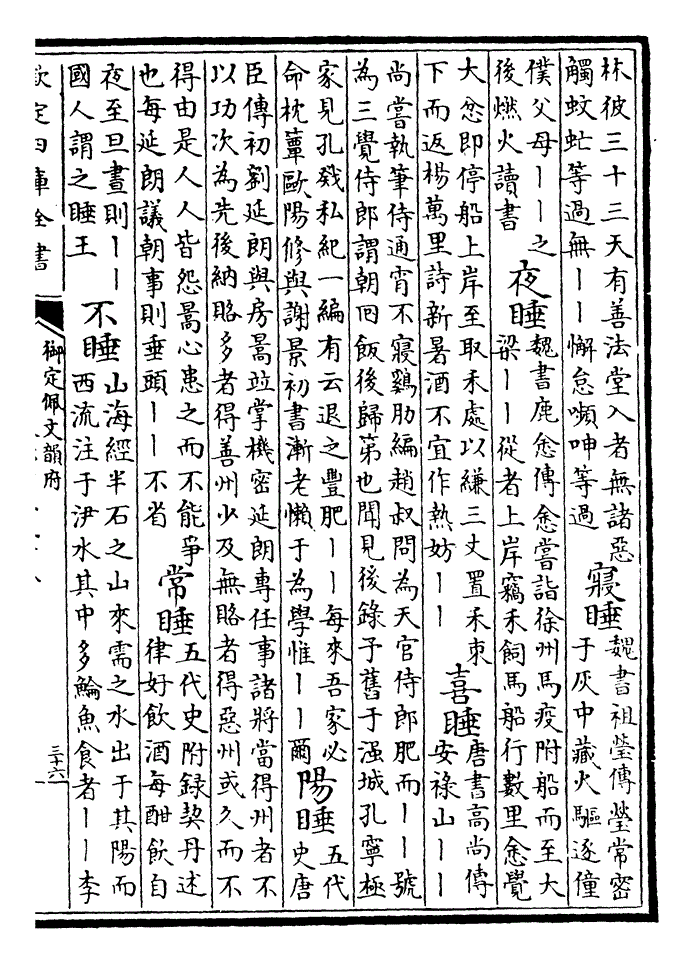 林彼三十三天有善法堂入者無諸惡
觸蚊虻等過無丨丨懈怠嚬呻等過
寢睡
魏書祖瑩傳瑩常密
于灰中藏火驅逐僮
僕父母丨丨之
後燃火讀書
夜睡
魏書鹿悆傳悆嘗詣徐州馬疫附船而至大
梁丨丨從者上岸竊禾飼馬船行數里悆覺
大忿即停船上岸至取禾處以縑三丈置禾束
下而返楊萬里詩新暑酒不宜作熱妨丨丨
喜睡
唐書高尚傳
安祿山丨丨
尚嘗執筆侍通宵不寢鷄肋編趙叔問為天官侍郎肥而丨丨號
為三覺侍郎謂朝囘飯後歸第也聞見後錄予舊于强城孔寧極
家見孔戣私紀一編有云退之豐肥丨丨每來吾家必
命枕簟歐陽修與謝景初書漸老懶于為學惟丨丨爾
陽睡
五代
史唐
臣傳初劉延朗與房暠竝掌機密延朗專任事諸將當得州者不
以功次為先後納賂多者得善州少及無賂者得惡州或久而不
得由是人人皆怨暠心患之而不能爭
也每延朗議朝事則垂頭丨丨不省
常睡
五代史附録契丹述
律好飲酒每酣飲自
夜至旦晝則丨丨
國人謂之睡王
不睡
山海經半石之山來需之水出于其陽而
西流注于伊水其中多鯩魚食者丨丨李
欽定四庫全書
御定佩文韻府
三十六